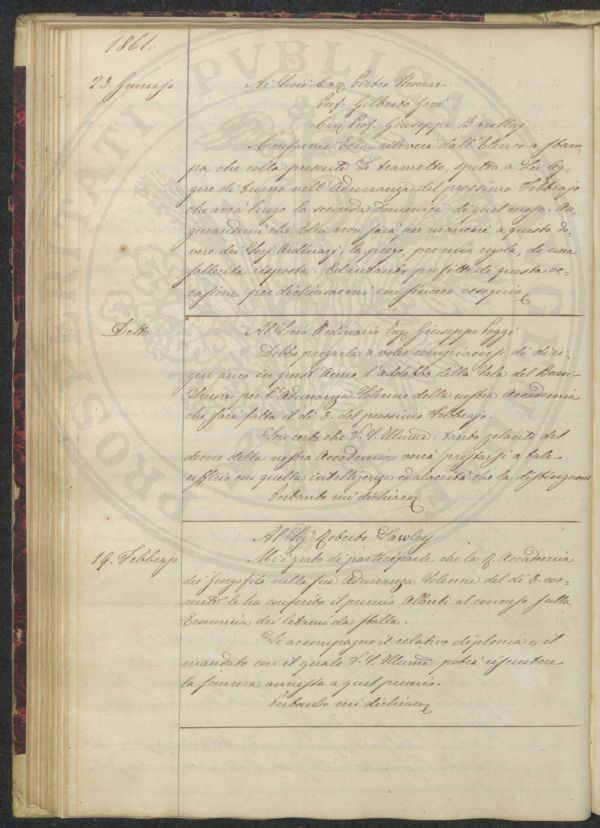 1861.
23. Gennajo
Ai Socii Cav. Pietro
Prof. Gilberto Govi
Cav. Prof. Giuseppe Barellaj
Conforme Ella rileverà dall'Elenco a stam-
pa che colla presente Le trametto, spetta a Lei leg-
gere di turno nell'Adunanza del prossimo Febbrajo
che avrà luogo la seconda Domenica di quel mese. Au-
gurandomi che Ella non sarà per mancare a questo do-
vere dei Socj Ordinarj, la prego, per mia regola, di una
sollecita risposta. Ed intanto profitto di questa oc-
casione per dichiararmi con sincero ossequio
Detto
Al Socio Ordinario Ing. Giuseppe Poggi
Debbo pregarla a voler compiacersi di diri-
gere anco in quest'Anno l'addobbo della Sala del Buon-
Umore per l'Adunanza Solenne della nostra Accademia
che sarà fatta il dì 3. del prossimo Febbrajo.
Son certo che V. S. Illma tanto zelante del
decoro della nostra Accademia vorrà prestarsi a tale
ufficio con quella intelligenza ed alacrità che la distinguono
Pertanto mi dichiaro
19. Febbrajo
Al Sig. Roberto Lawley
Mi è grato di parteciparle che la R. Accademia
dei Georgofili nella sua Adunanza Solenne del dì 3. cor-
rente le ha conferito il premio Alberti al concorso sulla
Economia dei letami da stalla.
Le accompagno il relativo diploma e il
mandato con il quale V. S. Illma potrà riscuotere
la somma annessa a quel premio.
Pertanto mi dichiaro